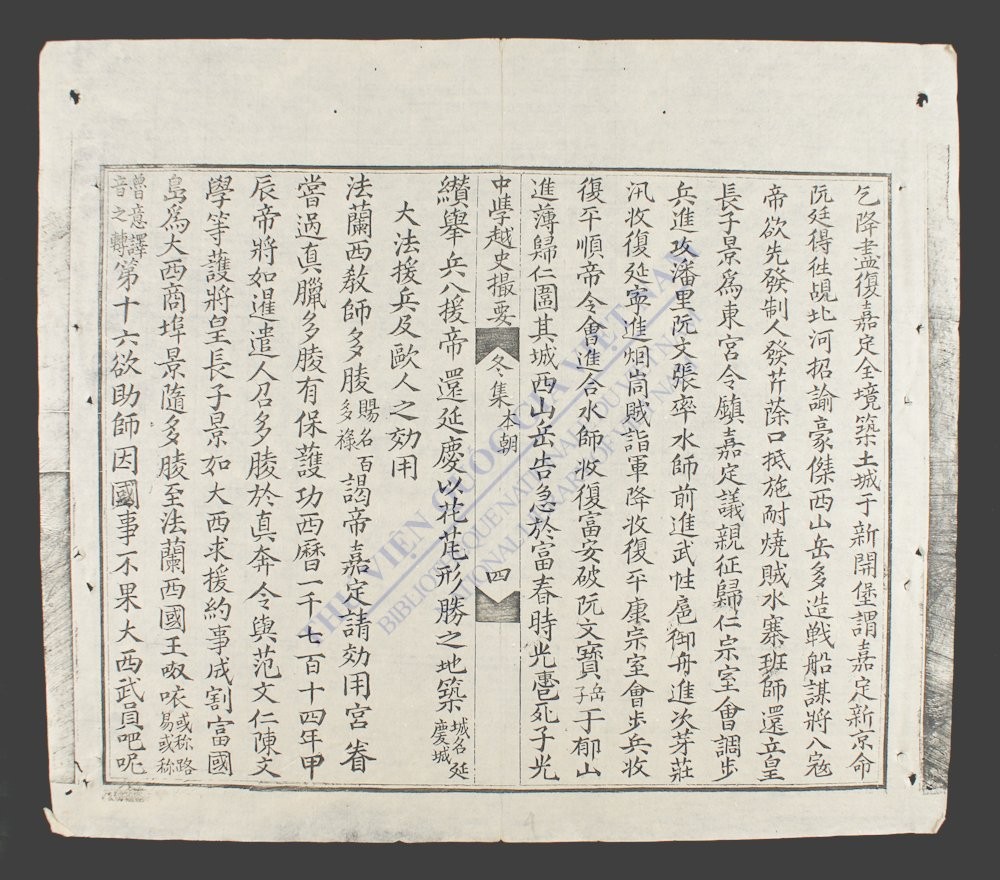 乞降盡復嘉定全境築土城于新開堡謂嘉定新京命
阮廷得徃覘北河招諭豪傑西山岳多造戦船謀將入寇
帝欲先發制人發芹蒢口抵施耐燒賊水寨班師還立皇
長子景爲東宮令鎮嘉定議親征歸仁宗室會調步
兵進攻潘里阮文張率水師前進武性扈御舟進次芽莊
汛收復延寧進烟崗賊詣軍降收復平康宗室會步兵收
復平順帝令會進合水師收復富安破阮文寶岳子于郁山
進薄歸仁圍其城西山岳告急於富春時光軆死子光
中學越史撮要 冬集 本朝 四
纘舉兵入援帝還延慶以花芄形勝之地築城名延慶城
大法援兵及歐人之効用
法蘭西教師多𦝄賜名百多祿謁帝嘉定請効用宮眷
嘗過真臘多𦝄有保護功西曆一千七百十四年甲
辰帝將如暹遣人召多𦝄於真奔令與范文仁陳文
學等護將皇長子景如大西求援約事成割富國
島為大西商埠景隨多𦝄至法蘭西國王㕞㕵或称路易或称
魯意譯音之轉第十六欲助師因國事不果大西武員吧呢
THƯ VIỆN QUỐC GIA VIỆT NAM
BIBLIOTHEQUE NATIONALE DU VIETNAM
NATIONAL LIBRARY OF VIETNAM